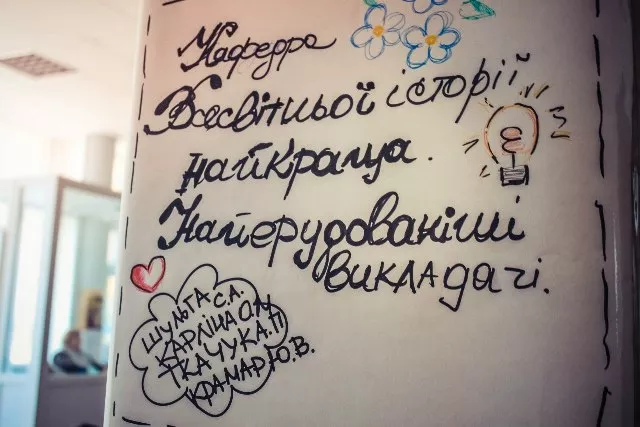 Кафедра
Всесвітньої історії
найкраща.
Найерудованіші
викладачі.
ШУЛЬГА С.А.
КАРЛІНА О.М
ТКАЧУК А.П
КРАМАР Ю.В.